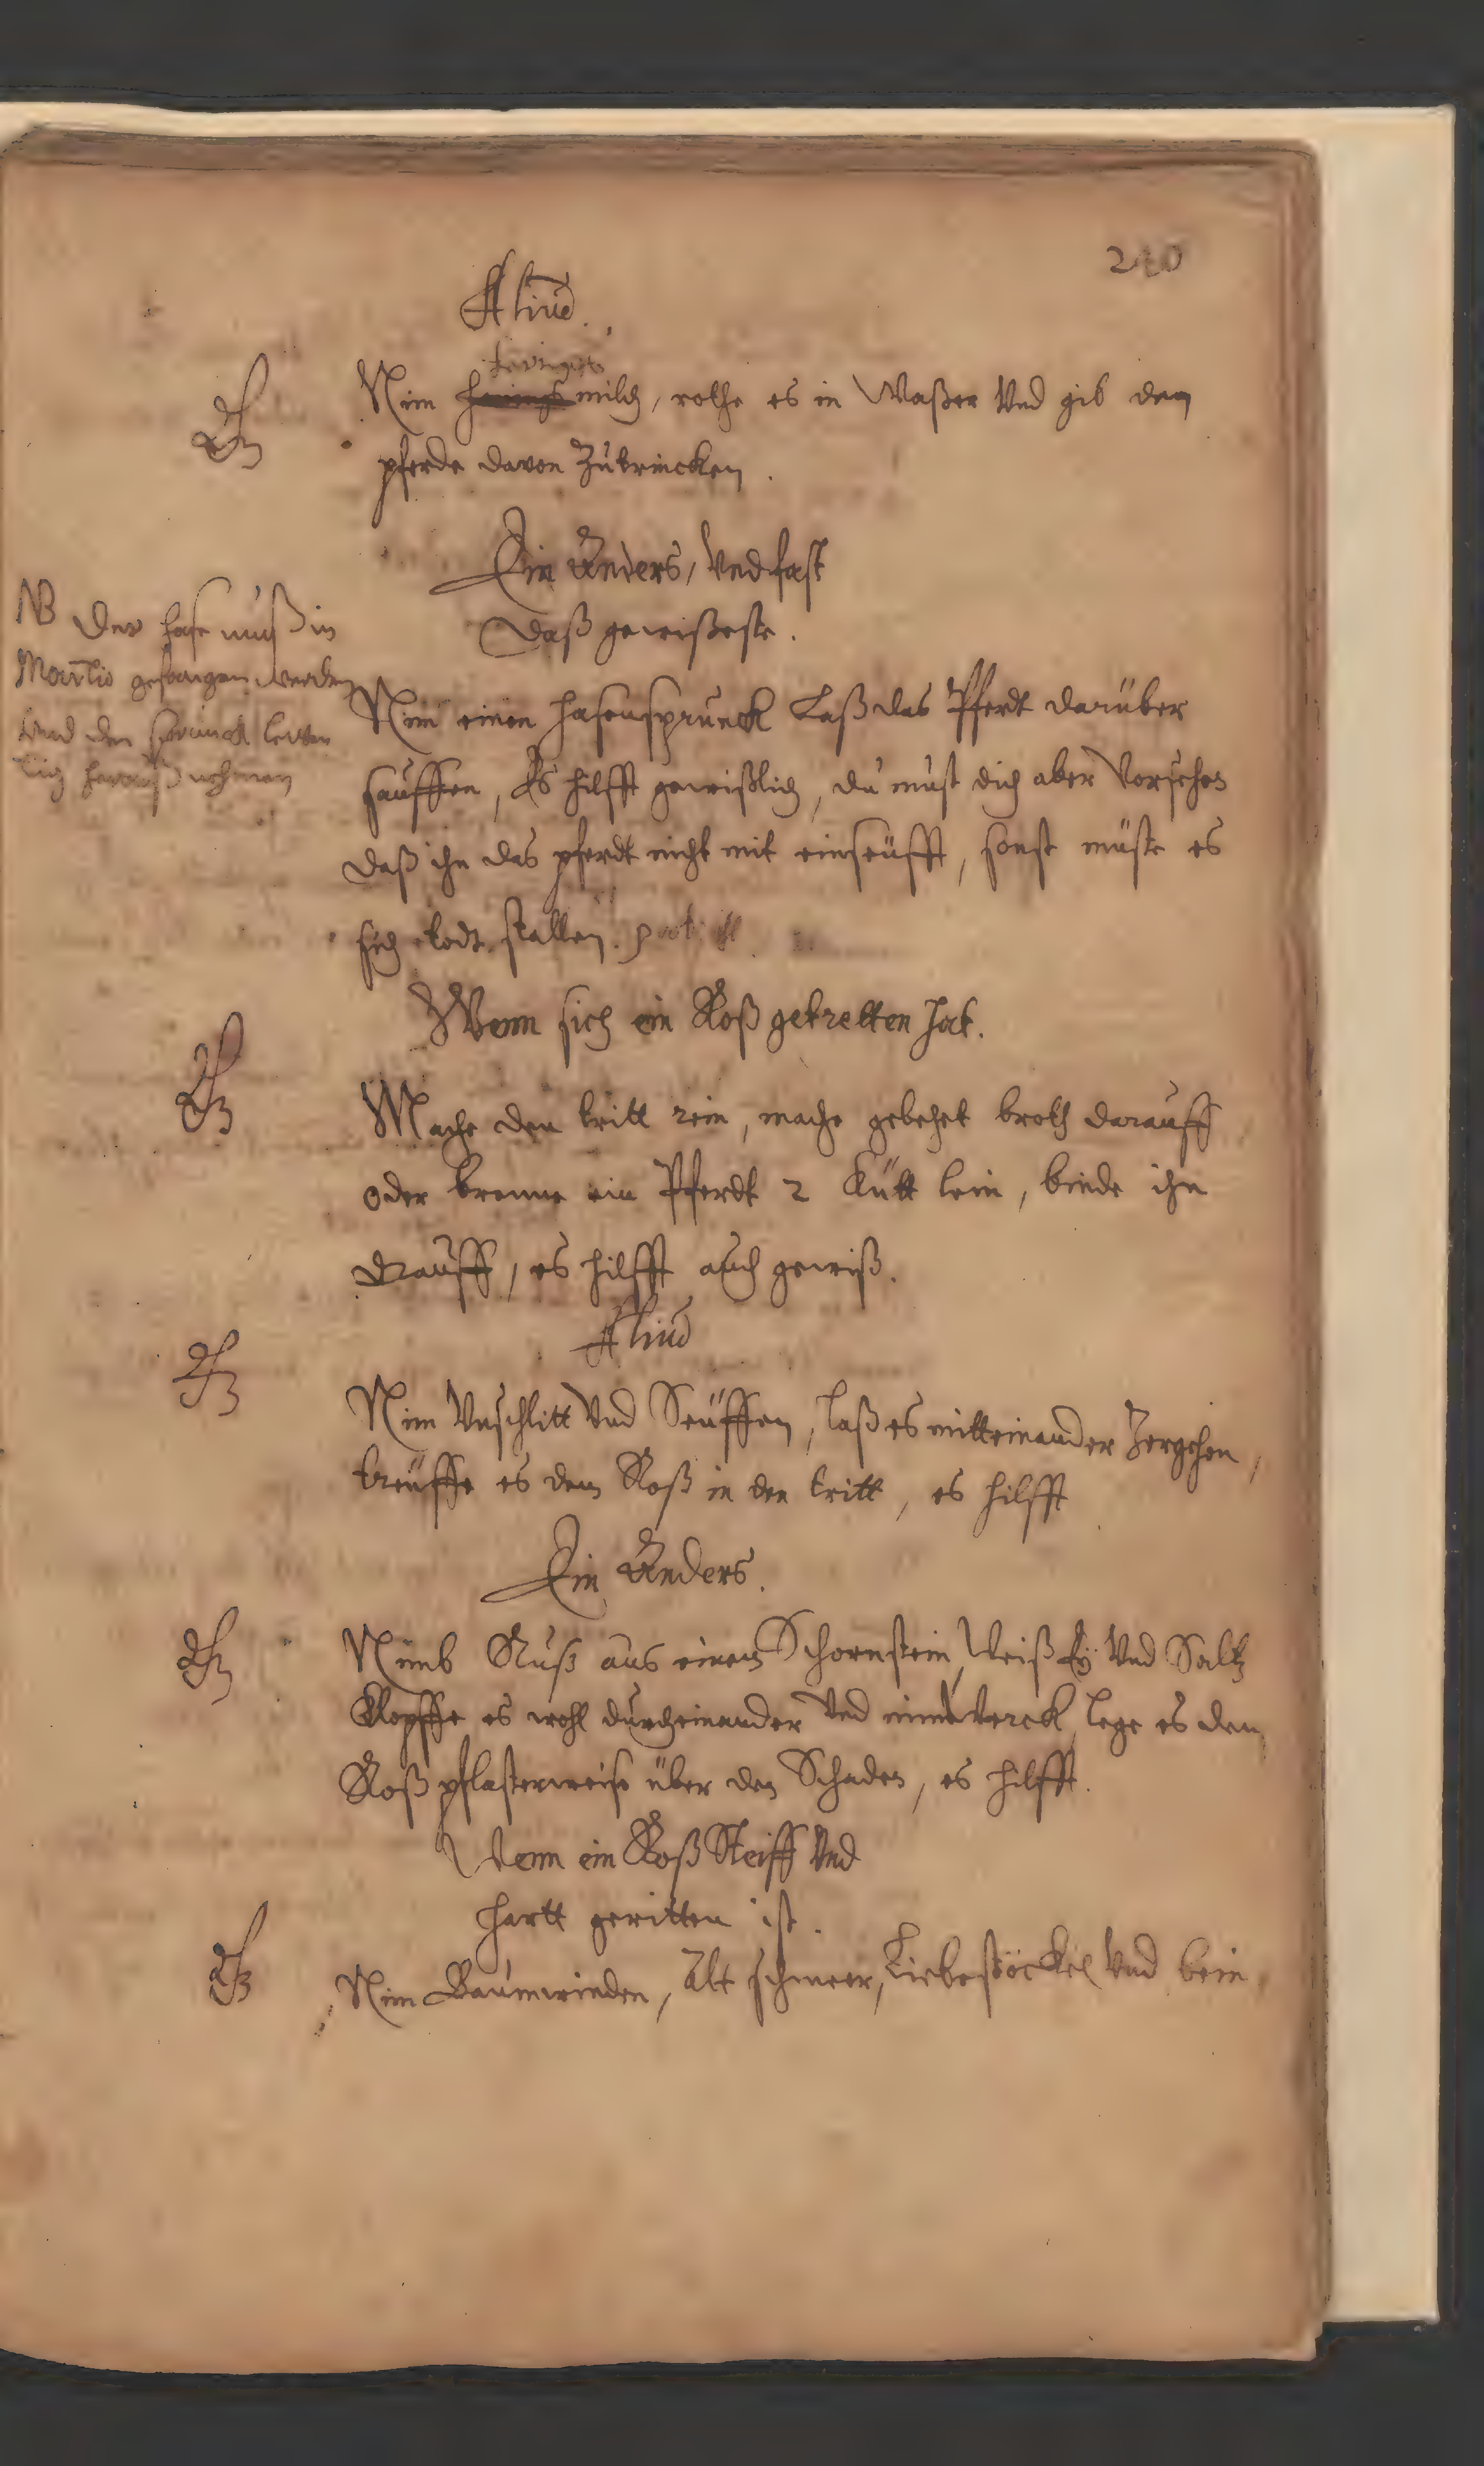 240
Aliud.
Nim milch, rothe es in Waßer Vnd gib dem
pferde davon Zutrincken.
Ein Anders, Vnd fast
Daß gewißeste.
NB Der hase muß in
Martio gefangen werden
Vnd den sprunck leben
dig herauß nehmen
Nim einen hasensprunck Laß das Pferdt darüber
sauffen, Es hilfft gewißlich, du must dich aber Vorsehen
daß ihn das pferdt nicht mit einseüfft, sonst müste es
sich todt stallen.
Wenn sich ein Roß getretten hat.
Mache den tritt rein, mache gebehet broth darauff
oder brenne ein Pferdt 2 lein, binde ihn
drauff, es hilfft auch gewiß.
Aliud
Nim Vnschlitt Vnd Seüffen, laß es mitteinander Zergehen,
treüffe es dem Roß in den tritt, es hilfft
Ein Anders.
Nimb Ruß aus einem Schornstein, Weiß Ey Vnd Saltz
Klopffe es wohl durcheinander Vnd nimb Werck, lege es dem
Roß pflasterweise über den Schaden, es hilfft.
Wenn ein Roß Steiff Vnd
hartt geritten ist.
Nim Baumrinden, Alt schmeer, Liebestöckel Vnd bein